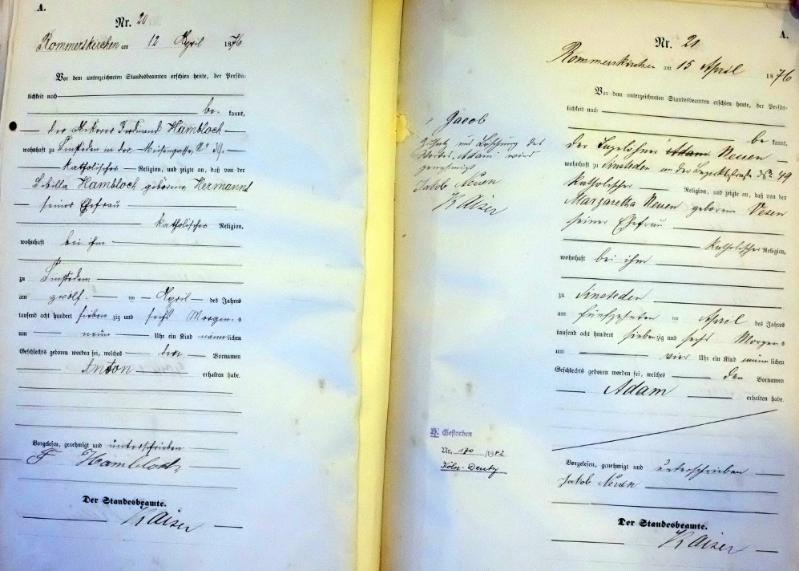 A.
Nr. 20
Rommerskirchen am 12 April 1876
Vor dem unterzeichneten Standesbeamten erschien heute, der Persön-
lichkeit nach
be kannt,
der Ackerer Ferdinand Hambloch
wohnhaft zu Sinsteden
katholischer Religion, und zeigte an, daß von der
Sibilla Hambloch geborene Hermanns
seiner Ehefrau
katholischer Religion,
wohnhaft bei ihm
zu Sinsteden
am zwölf ten April des Jahres
tausend acht hundert sieben zig und sechs Morgens
um neun Uhr ein Kind männlichen
Geschlechts geboren worden sei, welches den Vornamen
Anton erhalten habe.
Vorgelesen, genehmigt und unterschrieben
F Hambloch
Der Standesbeamte.
Kaiser
A.
Nr. 21
Rommerskirchen am 15 April 1876
Vor dem unterzeichneten Standesbeamten erschien heute, der Persön-
lichkeit nach
be kannt,
der Tagelöhner Adam Neuen
wohnhaft zu Sinsteden No 49
katholischer Religion, und zeigte an, daß von der
Margaretha Neuen geborene Vesen
seiner Ehefrau
katholischer Religion,
wohnhaft bei ihm
zu Sinsteden
am fünfzehnten April des Jahres
tausend acht hundert siebenzig und sechs Morgens
um vier Uhr ein Kind männlichen
Geschlechts geboren worden sei, welches den Vornamen
Adam erhalten habe.
Vorgelesen, genehmigt und unterschrieben
Jakob Neuen
Der Standesbeamte.
Kaiser
Jacob
Zusatz und Löschung des
Wortes Adam wird
genehmigt
Jakob Neuen
Kaiser
Gestorben
Nr.
Köln-Deutz